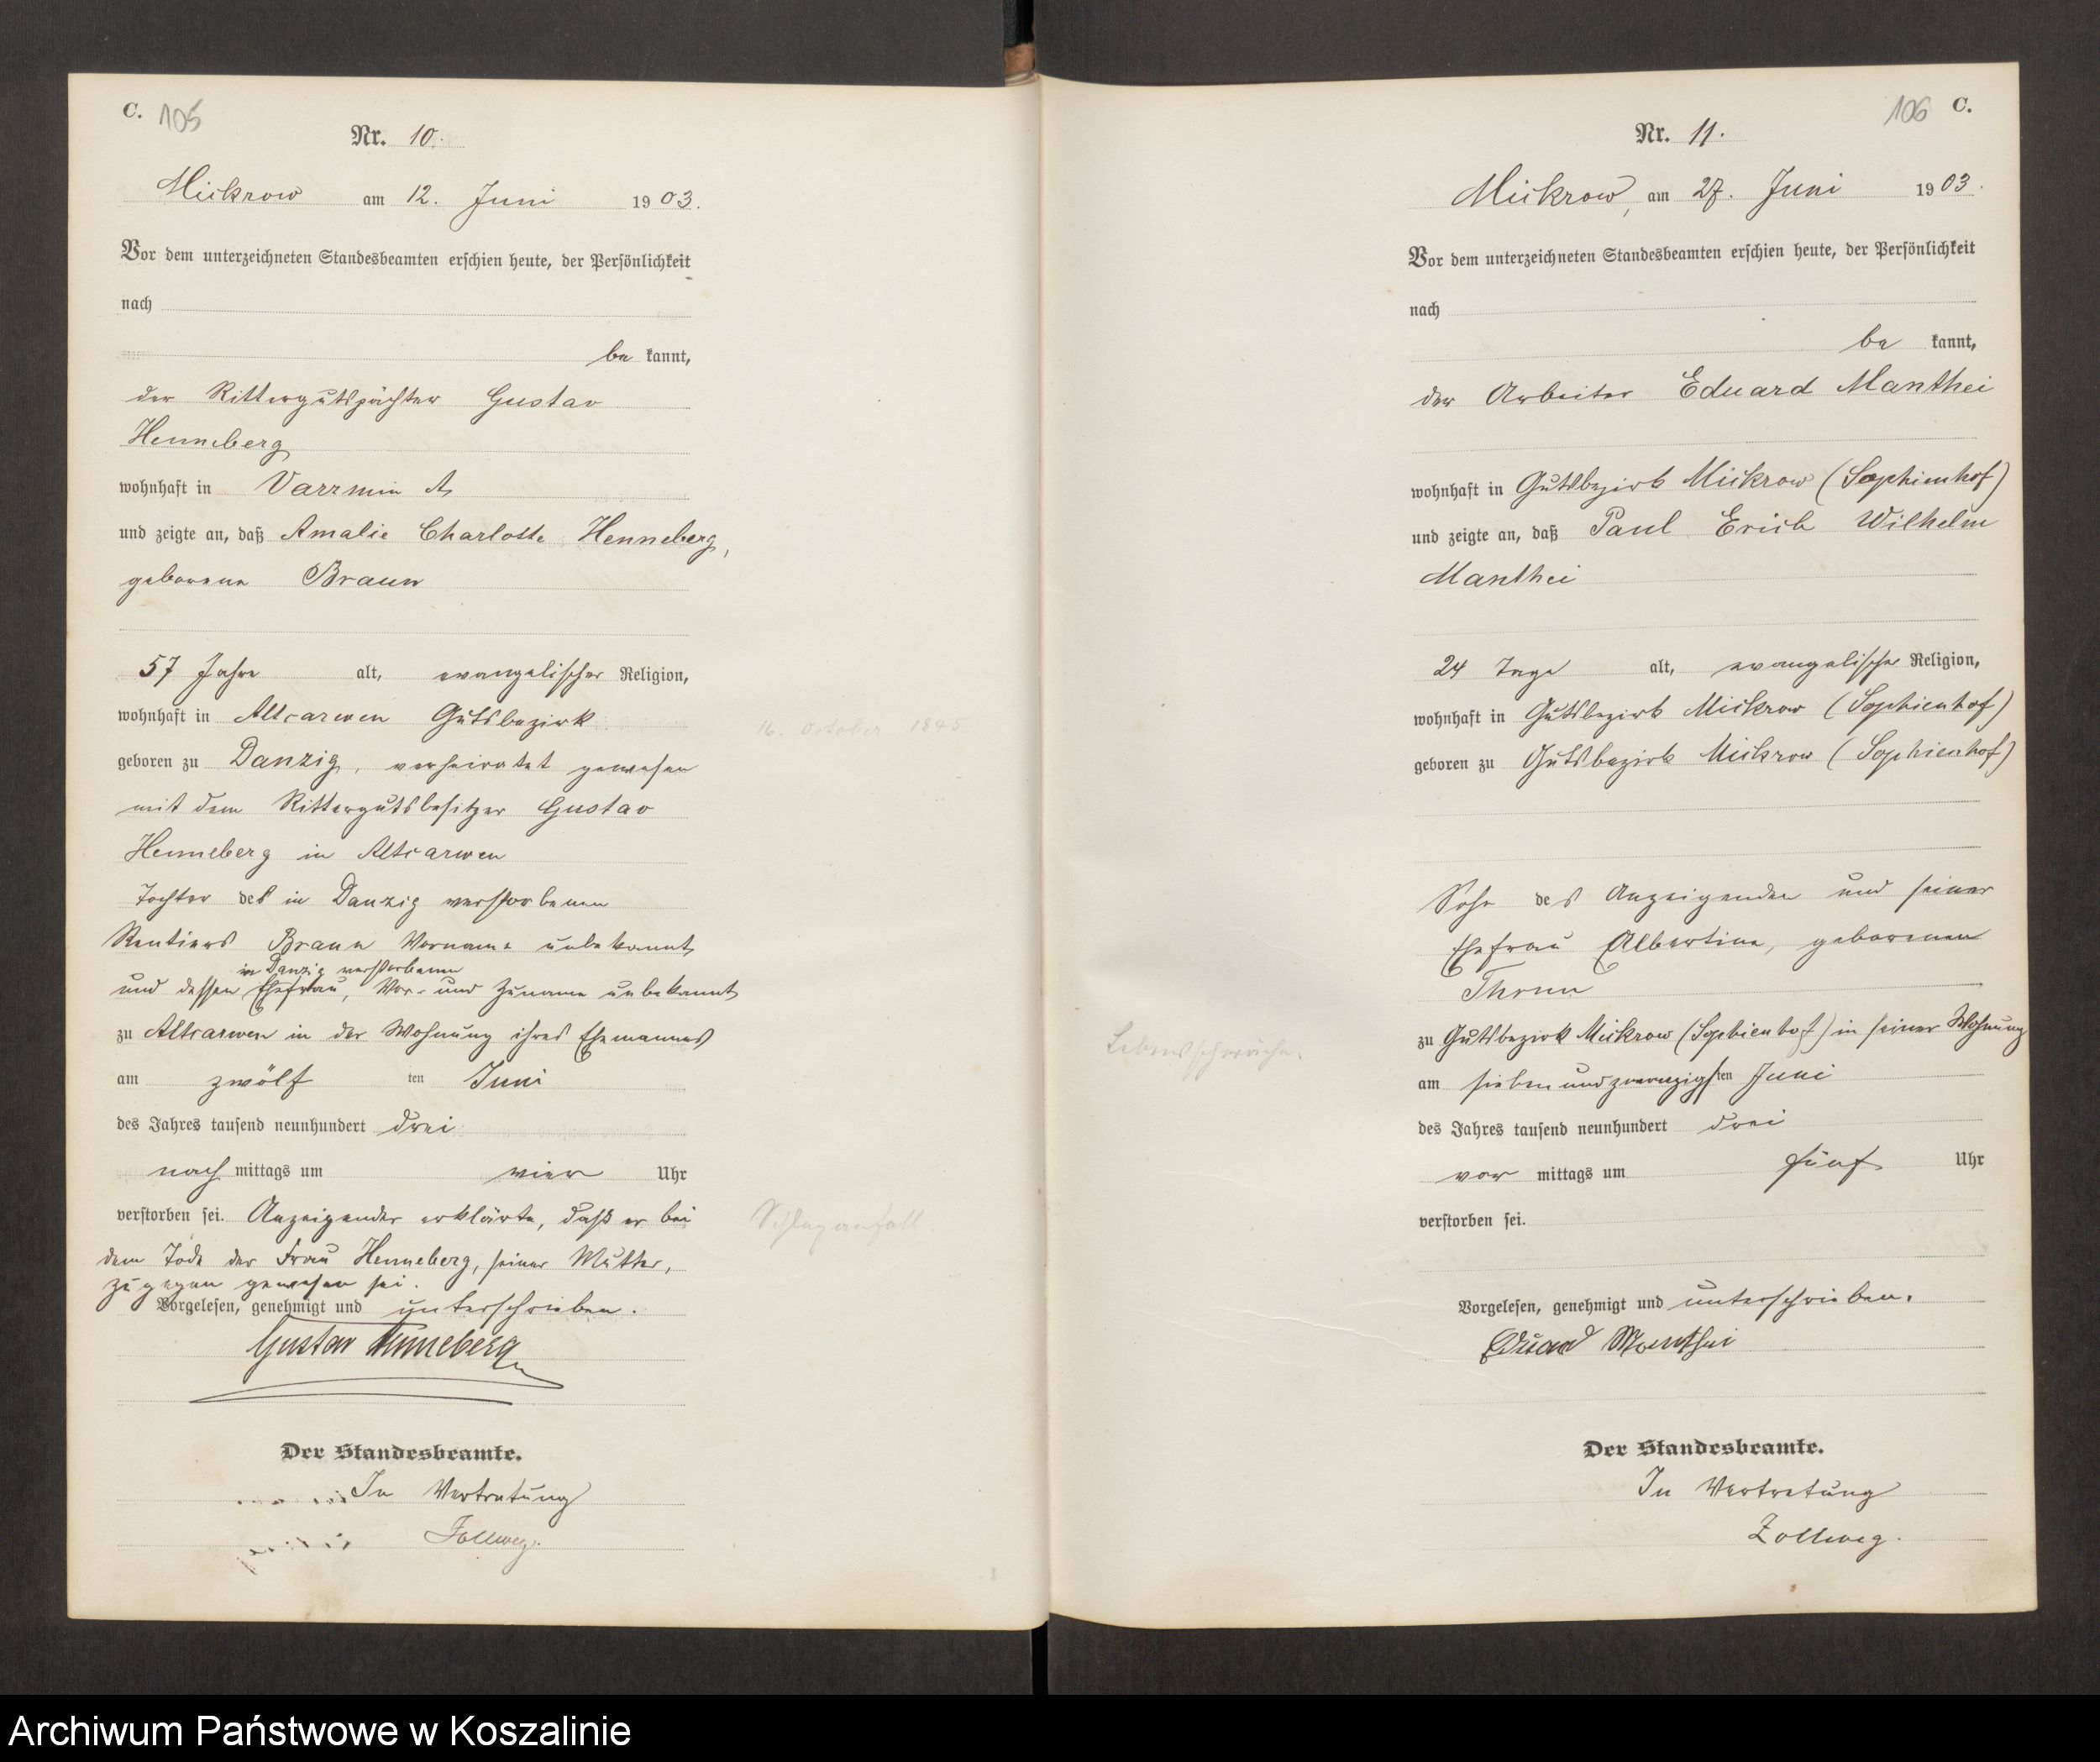 C. 105
Nr. 10.
Mickrow am 12. Juni 1903.
Vor dem unterzeichneten Standesbeamten erschien heute, der Persönlichkeit
nach
be kannt,
der Rittergutspächter Gustav
Henneberg
wohnhaft in Varzmin A
und zeigte an, daß Amalie Charlotte Henneberg,
geborene Braun
57 Jahre alt, evangelischer Religion,
wohnhaft in Altcarwen Gutsbezirk
16. October 1845
geboren zu Danzig, verheiratet gewesen
mit dem Rittergutsbesitzer Gustav
Henneberg in Altcarwen
Tochter des in Danzig verstorbenen
Rentiers Braun Vorname unbekannt
in Danzig verstorbenen
und dessen Ehefrau, Vor- und Zuname unbekannt
zu Altcarwen in der Wohnung ihres Ehemannes
am zwölf ten Juni
des Jahres tausend neunhundert drei
nach mittags um vier Uhr
verstorben sei. Anzeigender erklärte, daß er bei
Schlaganfall.
dem Tode der Frau Henneberg, seiner Mutter,
zugegen gewesen sei.
Vorgelesen, genehmigt und unterschrieben.
Gustav Henneberg
Der Standesbeamte.
In Vertretung
Zollweg.
106 C.
Nr. 11.
Mickrow, am 27. Juni 1903.
Vor dem unterzeichneten Standesbeamten erschien heute, der Persönlichkeit
nach
be kannt,
der Arbeiter Eduard Manthei
wohnhaft in Gutsbezirk Mickrow (Sophienhof)
und zeigte an, daß Paul Erich Wilhelm
Manthei
24 Tage alt, evangelischer Religion,
wohnhaft in Gutsbezirk Mickrow (Sophienhof)
geboren zu Gutsbezirk Mickrow (Sophienhof)
Sohn des Anzeigenden und seiner
Ehefrau Albertine, geborenen
Thrun
zu Gutsbezirk Mickrow (Sophienhof) in seiner Wohnung
Lebensschwäche.
am siebenundzwanzigsten Juni
des Jahres tausend neunhundert drei
vor mittags um fünf Uhr
verstorben sei.
Vorgelesen, genehmigt und unterschrieben.
Eduard Manthei
Der Standesbeamte.
In Vertretung
Zollweg.
Archiwum Państwowe w Koszalinie